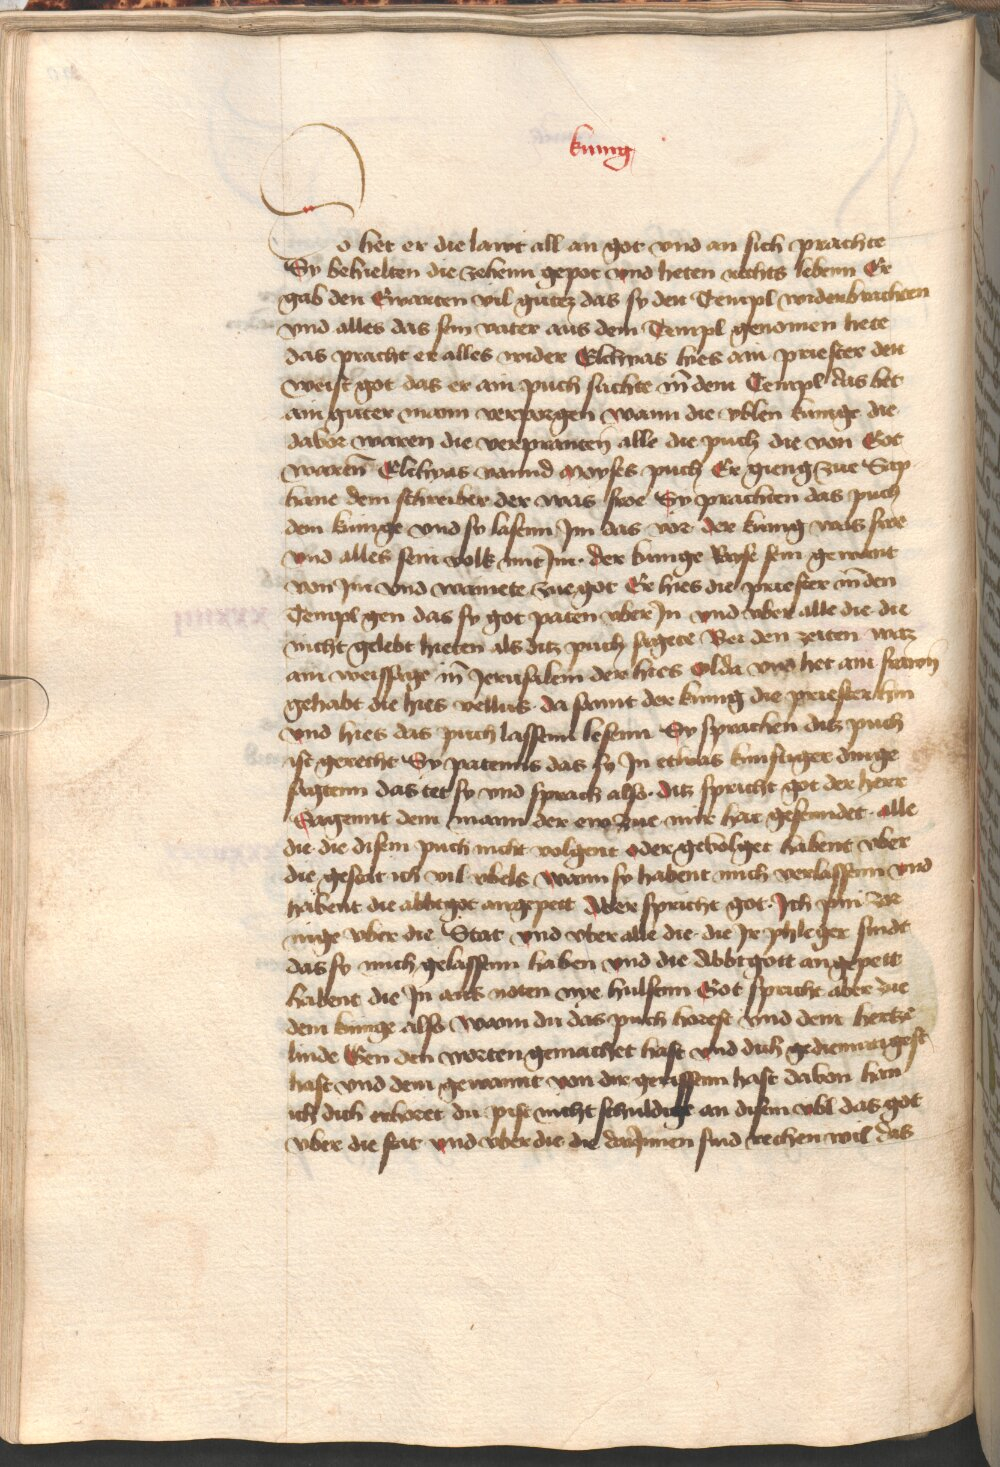 kunig
o het er die lawt all an got vnd an sich prachte
Sy behielten die zehenn gepot vnd heten rechts lebenn Er
gab den Ewarten vil gutez das sy den Templ widerbrachten
vnd alles das sein vater aus dem Templ genomen hete
das pracht er alles wider Elchyas hies ain priester den
weist got das er ain puch suchte in dem Templ das het
ain guter mann verporgen wann die vblen kunige die
dabor waren die verpranten alle die puch die von Got
waren Elchyas vannd Moyses puch Er gieng zue Sap
hane dem schreiber der was froe Sy prachten das puch
dem kunige vnd sy lasenn Im das vor der kunig was froe
vnd alles sein volk mit Im. der kunige Rayse sein gewant
von Im vnd wainete zue got Er hies die priester in den
Templ gen das sy got paten vber In vnd vber alle die die
nicht gelebt hieten als ditz puch sagete Bei den zeiten waz
ain weissage in Jerusalem der hies Olda vnd het ain frawn
gehabt die hies vellus. da sannt der kunig die priester hin
vnd hies das puch lassenn lesenn Sy sprachen ditz puch
ist gerecht Sy patenns das sy In etwas kunftiger dinge
sagtenn das tet sy vnd sprach also. ditz spricht got der herr
Sagennt dem mann der ew zue mir hat gesenndet. alle
die die disem puch nicht volgent oder gevolget habent vber
die gesent ich vil vbels wann sy habent mich verlassenn vnd
habent die abbtgot angepett Aber spricht got. Ich pin zor
nige vber die Stat vnd vber alle die die Ir phleger sindt
das sy mich gelassenn haben vnd die Abbtgott angepett
habent die In aus noten nye hulfenn Got spricht aber zue
dem kunige also wann du das puch horest vnd dein hertze
linde Gen den worten gemachet hast vnd dich gediemutigest
hast vnd dein gewannt von dir gerissenn hast davon han
ich dich erhoret du pist nicht schuldige an disem vbl das got
vber die stat vnd vber die die darInnen sind rechen wil das